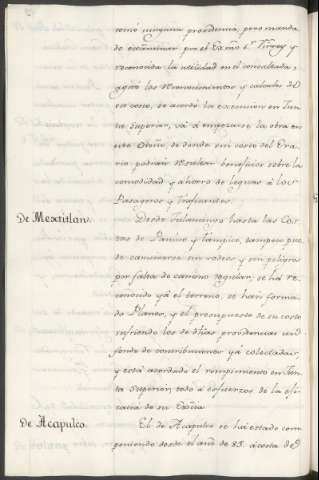 tomó ninguna providencia, pero manda
do examinar por el Exmo. Sr. Virrey y
reconocida la utilidad en el consultada,
los reconocimientos y calculo del
costo, se acordó la execucion en Jun
ta Superior, vá á empezarse la obra en
este Otoño, de donde sin costo del Era
rio podrán resultar beneficios sobre la
comodidad y ahorro de leguas á los
Pasageros y Traficantes.
De Mextitlan.
Desde Tulancingo hasta las Cos
tas de Panuco y Tampico, tampoco pue
de caminarse sin rodeos y sin peligros
por falta de camino regular; se há re
conocido yá el terreno, se hán forma
do Planos, y el presupuesto de su costo
sufriendo los de dhas providencias un
fondo de contribuciones yá colectadas,
y está acordado el rompimiento en Jun
ta Superior, todo á esfuerzos de la efi
cacia de su Exca.
De Acapulco.
El de Acapulco se há estado com
poniendo desde el año de 85. á costa de